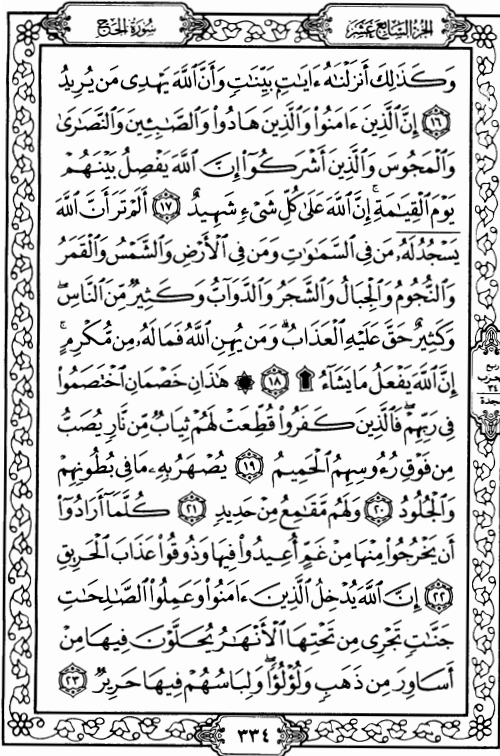 الجزء السابع عشر
سورة الحج
وَكَذَٰلِكَ أَنزَلْنَٰهُ ءَايَٰتٍۭ بَيِّنَٰتٍ وَأَنَّ ٱللَّهَ يَهْدِى مَن يُرِيدُ
﴿١٦﴾ إِنَّ ٱلَّذِينَ ءَامَنُوا۟ وَٱلَّذِينَ هَادُوا۟ وَٱلصَّٰبِـِٔينَ وَٱلنَّصَٰرَىٰ
وَٱلْمَجُوسَ وَٱلَّذِينَ أَشْرَكُوٓا۟ إِنَّ ٱللَّهَ يَفْصِلُ بَيْنَهُمْ
يَوْمَ ٱلْقِيَٰمَةِ ۚ إِنَّ ٱللَّهَ عَلَىٰ كُلِّ شَىْءٍ شَهِيدٌ ﴿١٧﴾ أَلَمْ تَرَ أَنَّ ٱللَّهَ
يَسْجُدُ لَهُۥ مَن فِى ٱلسَّمَٰوَٰتِ وَمَن فِى ٱلْأَرْضِ وَٱلشَّمْسُ وَٱلْقَمَرُ
وَٱلنُّجُومُ وَٱلْجِبَالُ وَٱلشَّجَرُ وَٱلدَّوَآبُّ وَكَثِيرٌ مِّنَ ٱلنَّاسِ ۖ
وَكَثِيرٌ حَقَّ عَلَيْهِ ٱلْعَذَابُ ۗ وَمَن يُهِنِ ٱللَّهُ فَمَا لَهُۥ مِن مُّكْرِمٍ ۚ
إِنَّ ٱللَّهَ يَفْعَلُ مَا يَشَآءُ ۩ ﴿١٨﴾ ۞ هَٰذَانِ خَصْمَانِ ٱخْتَصَمُوا۟
فِى رَبِّهِمْ ۖ فَٱلَّذِينَ كَفَرُوا۟ قُطِّعَتْ لَهُمْ ثِيَابٌ مِّن نَّارٍ يُصَبُّ
مِن فَوْقِ رُءُوسِهِمُ ٱلْحَمِيمُ ﴿١٩﴾ يُصْهَرُ بِهِۦ مَا فِى بُطُونِهِمْ
وَٱلْجُلُودُ ﴿٢٠﴾ وَلَهُم مَّقَٰمِعُ مِنْ حَدِيدٍ ﴿٢١﴾ كُلَّمَآ أَرَادُوٓا۟
أَن يَخْرُجُوا۟ مِنْهَا مِنْ غَمٍّ أُعِيدُوا۟ فِيهَا وَذُوقُوا۟ عَذَابَ ٱلْحَرِيقِ
﴿٢٢﴾ إِنَّ ٱللَّهَ يُدْخِلُ ٱلَّذِينَ ءَامَنُوا۟ وَعَمِلُوا۟ ٱلصَّٰلِحَٰتِ
جَنَّٰتٍ تَجْرِى مِن تَحْتِهَا ٱلْأَنْهَٰرُ يُحَلَّوْنَ فِيهَا مِنْ
أَسَاوِرَ مِن ذَهَبٍ وَلُؤْلُؤًا ۖ وَلِبَاسُهُمْ فِيهَا حَرِيرٌ ﴿٢٣﴾
٣٣٤